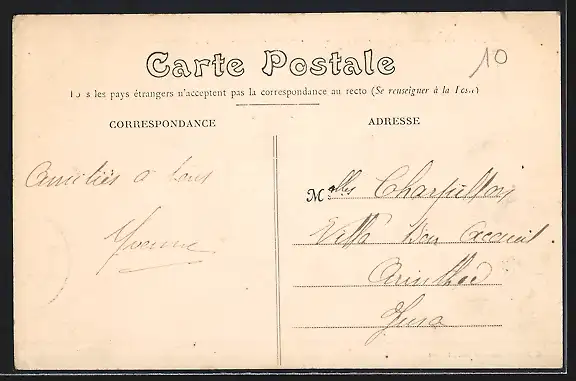 Carte Postale
10
Tous les pays étrangers n'acceptent pas la correspondance au recto (Se renseigner à la Poste)
CORRESPONDANCE
ADRESSE
Amitiés à tous
Yvonne
Melles
Villa Bon Accueil
Arinthod
Jura